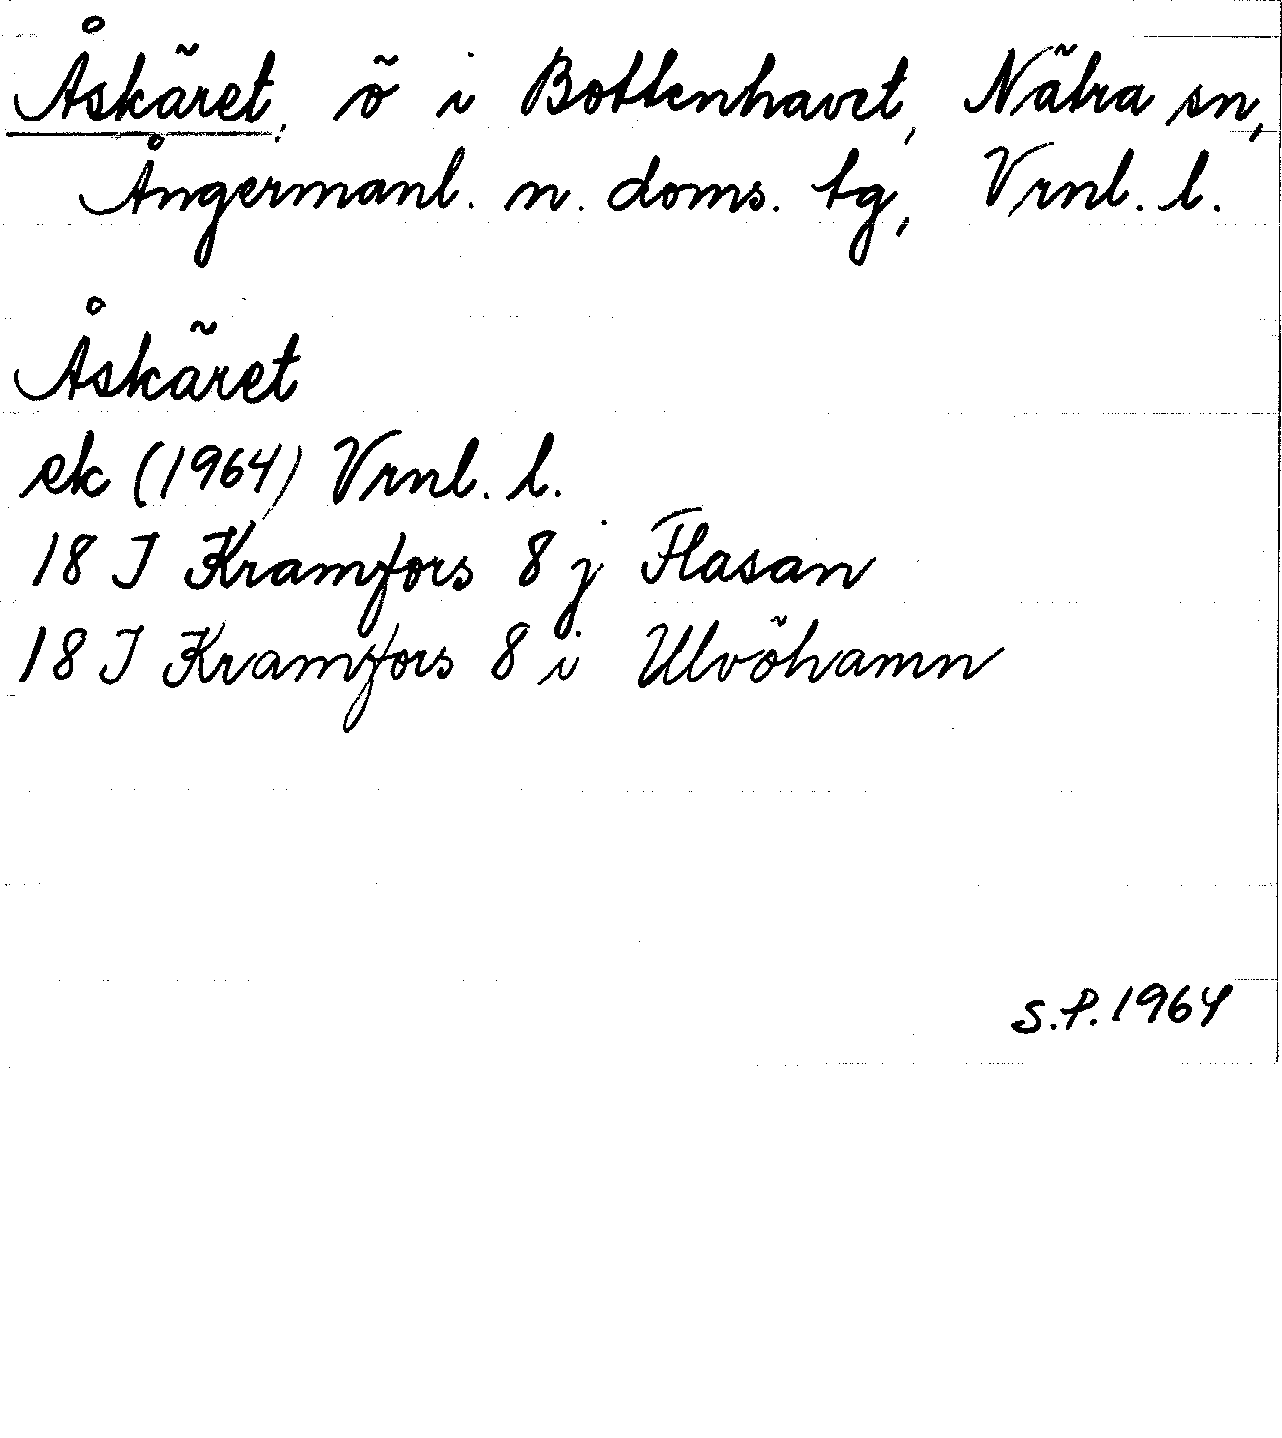 Åskäret, ö i Bottenhavet, Nätra sn,
Ångermanl. n. doms. tg, Vrnl. l.
Åskäret
ek (1964) Vrnl. l.
18 J Kramfors 8 j Flasan
18 J Kramfors 8 i Ulvöhamn
S.P. 1964